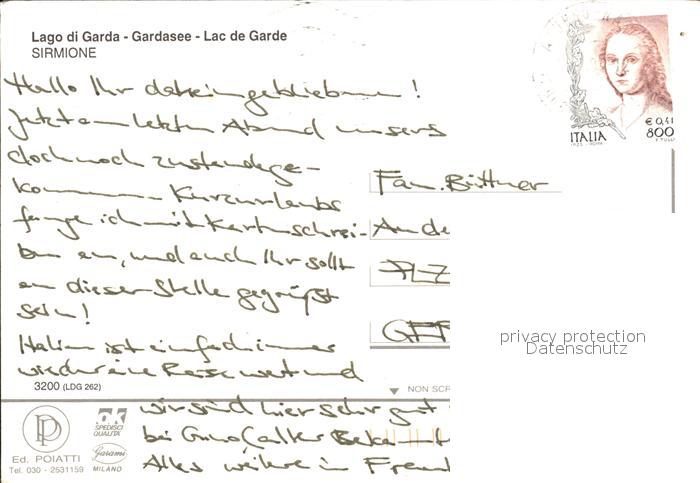 Lago di Garda - Gardasee - Lac de Garde
SIRMIONE
Hallo Ihr daheimgebliebenen!
Jetzt am letzten Abend unseres
doch noch zustandege-
kommenen Kurzurlaubs
fange ich mit Kartenschrei-
ben an, und auch Ihr sollt
an dieser Stelle gegrüßt
sein!
Italien ist einfach immer
wieder eine Reise wert und
wir sind hier sehr gut
bei
Alles weitere in
Fam. Büttner
An de
PLZ
€ 0,41
800
ITALIA
privacy protection
Datenschutz
3200 (LDG 262)
NON SCR
PD
OK
SPEDISCI
QUALITÀ
Garami
MILANO
Ed. POIATTI
Tel. 030 - 2531159